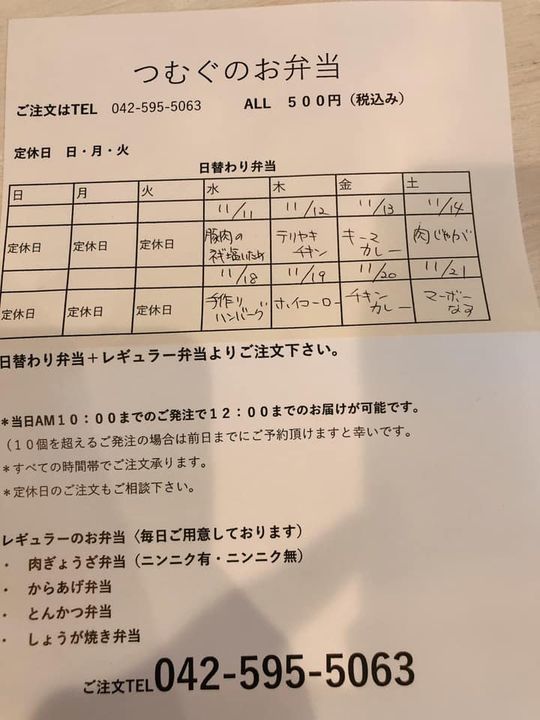 つむぐのお弁当
ご注文はTEL 042-595-5063 ALL ５００円（税込み）
定休日 日・月・火
日替わり弁当
日 月 火 水 木 金 土
11/11 11/12 11/13 11/14
定休日 定休日 定休日 豚肉のネギ塩いため テリヤキチキン キーマカレー 肉じゃが
11/18 11/19 11/20 11/21
定休日 定休日 定休日 手作りハンバーグ ホイコーロー チキンカレー マーボーなす
日替わり弁当＋レギュラー弁当よりご注文下さい。
＊当日AM１０：００までのご発注で１２：００までのお届けが可能です。
（１０個を超えるご発注の場合は前日までにご予約頂けますと幸いです。
＊すべての時間帯でご注文承ります。
＊定休日のご注文もご相談下さい。
レギュラーのお弁当〈毎日ご用意しております）
・ 肉ぎょうざ弁当（ニンニク有・ニンニク無）
・ からあげ弁当
・ とんかつ弁当
・ しょうが焼き弁当
ご注文TEL042-595-5063